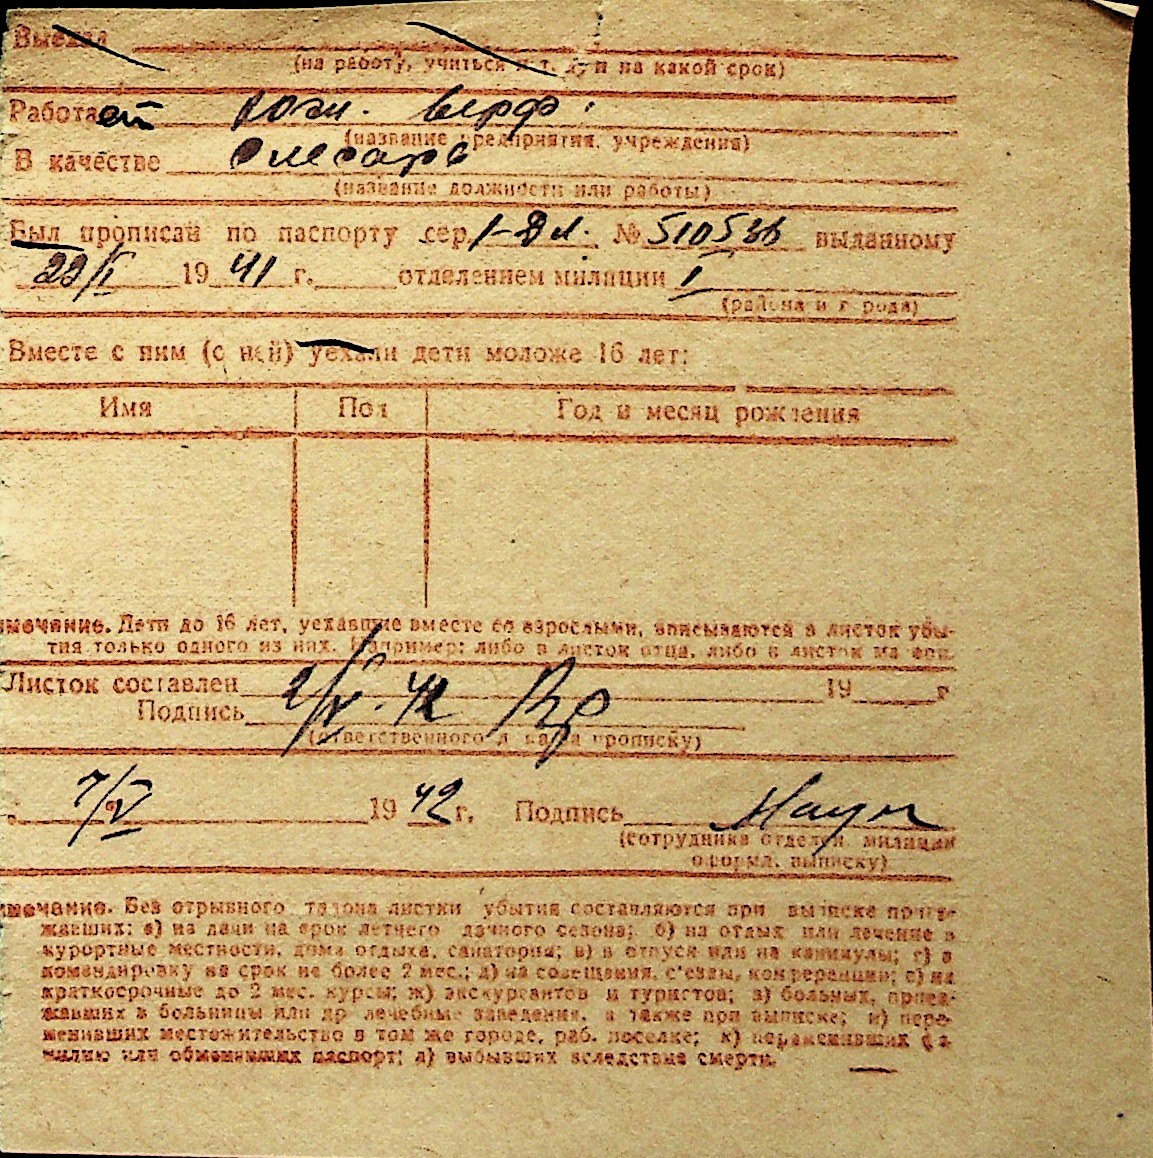 Выехал
(на работу, учиться и т. д. и на какой срок)
Работает Южн. верф.
(название предприятия, учреждения)
В качестве Слесарь
(название должности или работы)
Был прописан по паспорту сер. № выданному
22/I 1941 г. отделением милиции I
(района и города)
Вместе с ним (с ней) уехали дети моложе 16 лет:
Имя Пол Год и месяц рождения
мечание. Дети до 16 лет, уехавшие вместе со взрослыми, вписываются в листок убы-
тия только одного из них. Например: либо в листок отца, либо в листок матери.
Листок составлен 2/V-42 19 г
Подпись
(ответственного за прописку)
7/V 1942 г. Подпись
(сотрудника отделен. милиции
оформл. выписку)
мечание. Без отрывного талона листки убытия составляются при выписке приез-
жавших: а) на дачи на срок летнего дачного сезона; б) на отдых или лечение в
курортные местности, дома отдыха, санатории; в) в отпуск или на каникулы; г) в
командировку на срок не более 2 мес.; д) на совещания, с'езды, конференции; е) на
краткосрочные до 2 мес. курсы; ж) экскурсантов и туристов; з) больных, приез-
жавших в больницы или др лечебные заведения, а также при выписке; и) пере-
менивших местожительство в том же городе, раб. поселке; к) переменивших фа-
милию или обменявших паспорт; л) выбывших вследствие смерти.